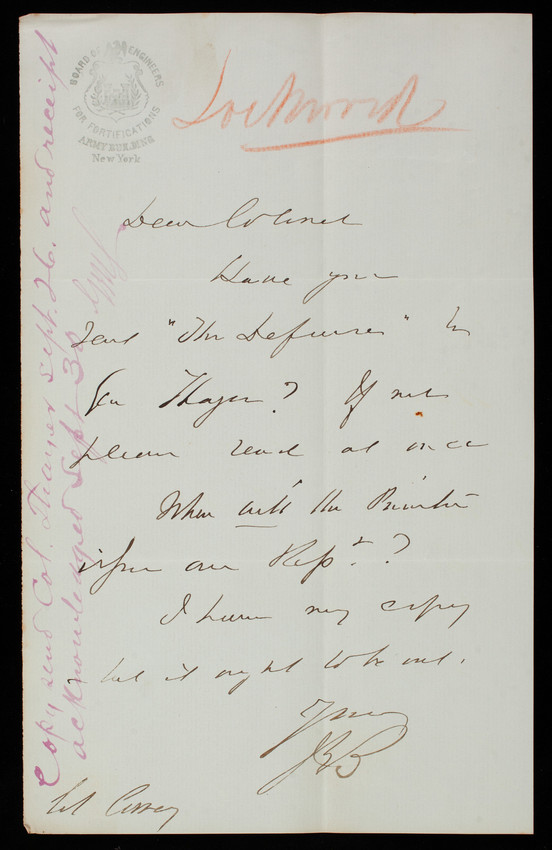 BOARD OF ENGINEERS
FOR FORTIFICATIONS
ARMY BUILDING
New York
Lockwood
Dear Colonel
Have you
send "The Defences" to
Gen Thayer? If not
please send at once
When will the Printer
issue our Rept.?
I have my copy
but it ought to be out.
Yours
JGB
Col Casey
Copy send Col. Thayer Sept. 26. and receipt
acknowledged Sept 30